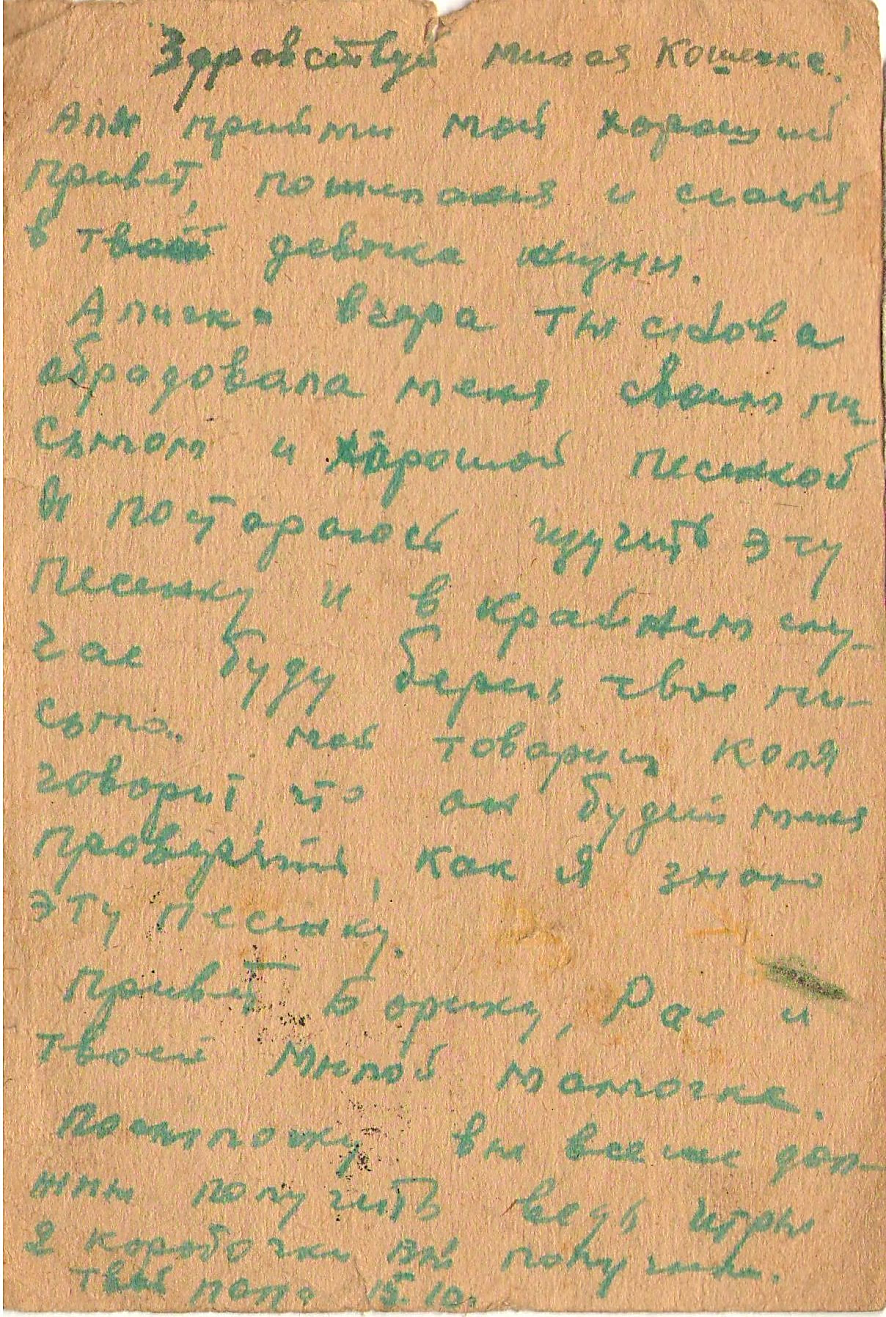 Здравствуй милая Кошечка!
Аля прийми мой хороший
привет, пожелания и счастья
в твоей девочка жизни.
Алиска вчера ты снова
абрадовала меня своим пи-
сьмом и хорошой песенкой
Я постараюсь изучить эту
песенку и в крайнем слу-
чае буду беречь твое пи-
сьмо. мой товарищ коля
говорит, что он будет меня
проверять, как я знаю
эту песенку.
Привет Борику, Рае и
твоей милой мамочке.
Посылочку вы все же дол-
жны получить ведь игры
2 коробочки вы получили.
твой папа 15.10.